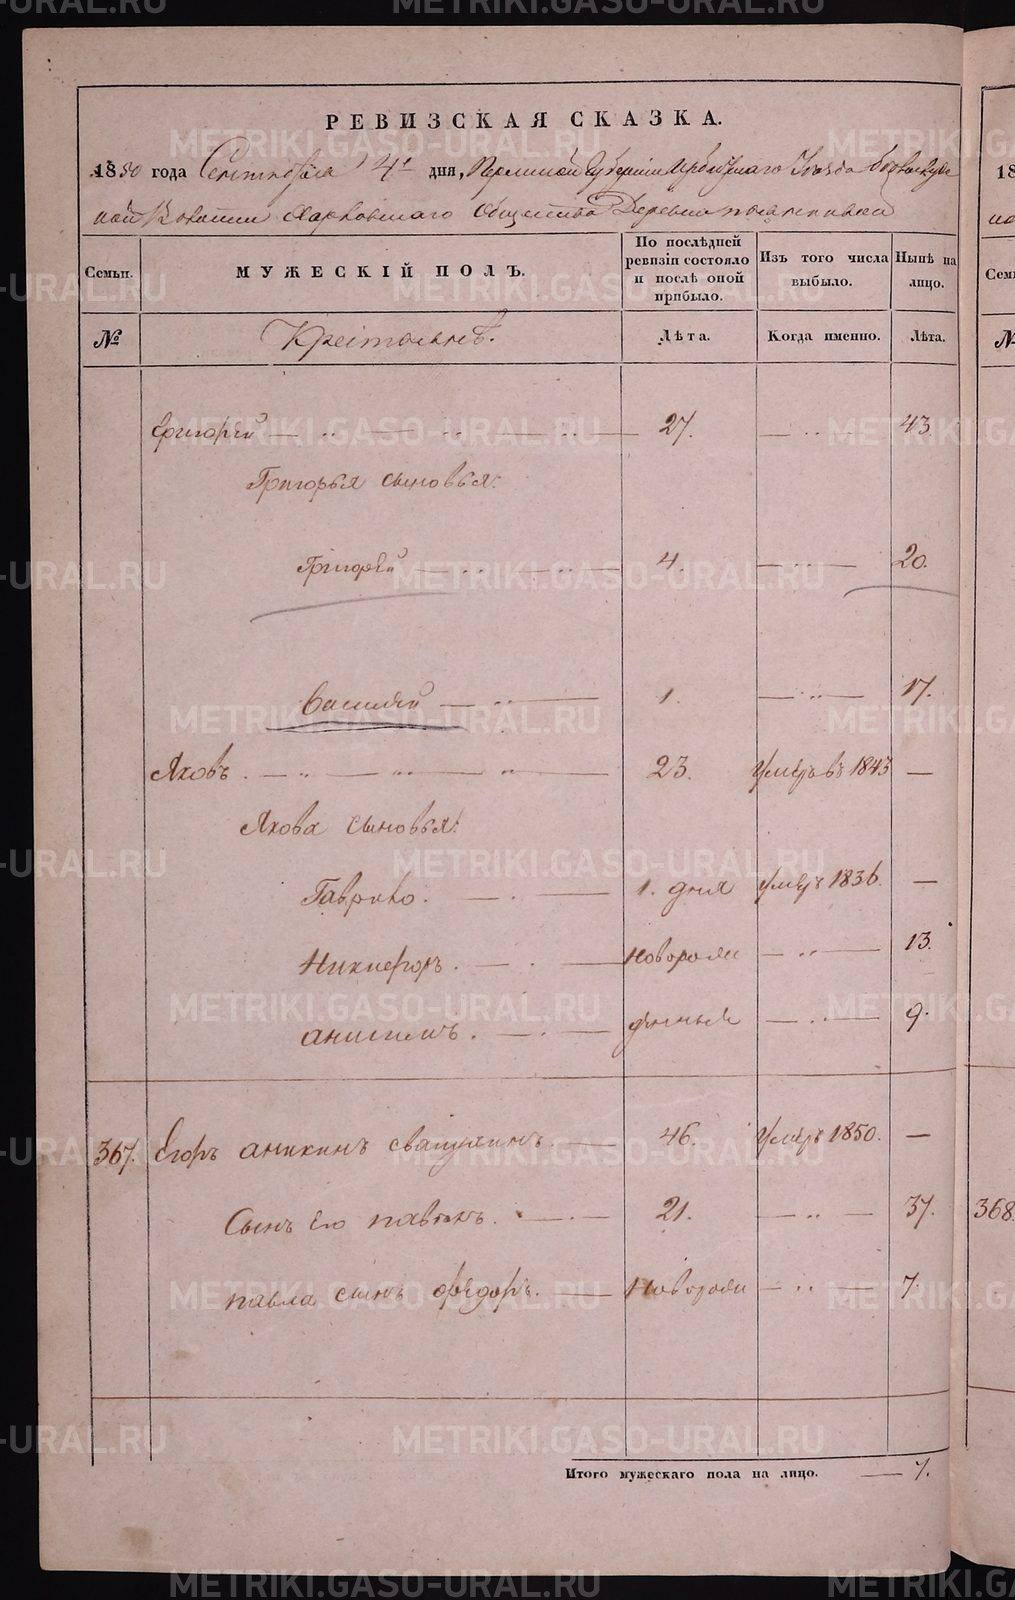 РЕВИЗСКАЯ СКАЗКА.
1850 года Сентября 4го дня, Пермской Губернии Ирбитскаго Уезда
ной Волости Харловскаго Общества Деревни
Семьи. МУЖЕСКІЙ ПОЛЪ. По послѣдней ревизіи состояло и послѣ оной прибыло. Изъ того числа выбыло. Нынѣ на лицо.
№ Крестьянѣ. Лѣта. Когда именно. Лѣта.
Григорей 27. 43.
Григорья сыновья:
Григорей 4. 20.
Василей 1. 17.
Яковъ. 23. Умеръ въ 1843 —
Якова сыновья:
Гаврило. 1. дня умеръ 1836. —
Никифоръ. Новорож 13.
анисимъ. денныя 9.
367. Егоръ аникинъ 46. Умеръ 1850. —
Сынъ Его павелъ. 21. 37. 368.
павла сынъ федоръ. Новорож 7.
Итого мужескаго пола на лицо. — 7.
METRIKI.GASO-URAL.RU